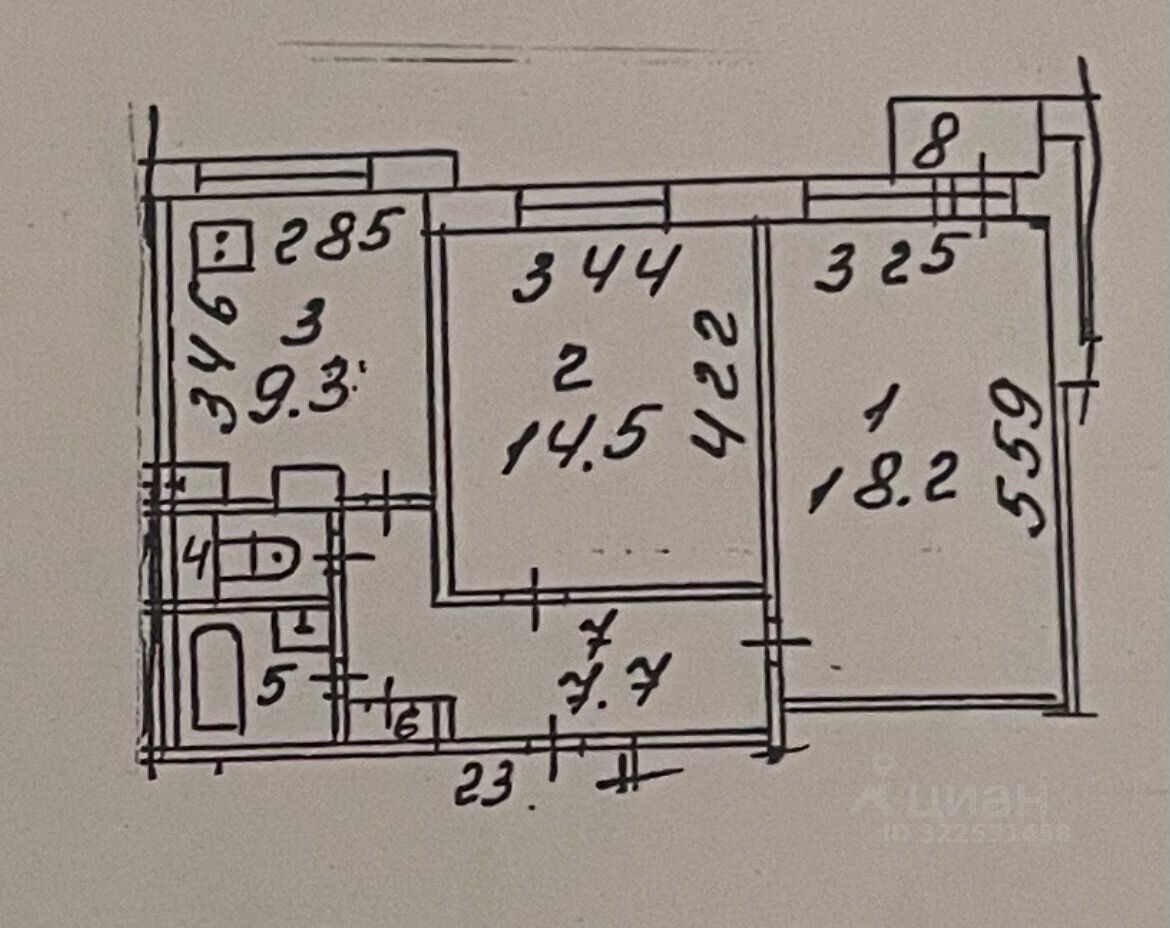 8
285
346
3
9.3
344
422
2
14.5
325
559
1
18.2
4
5
6
7
7.7
23.
циан